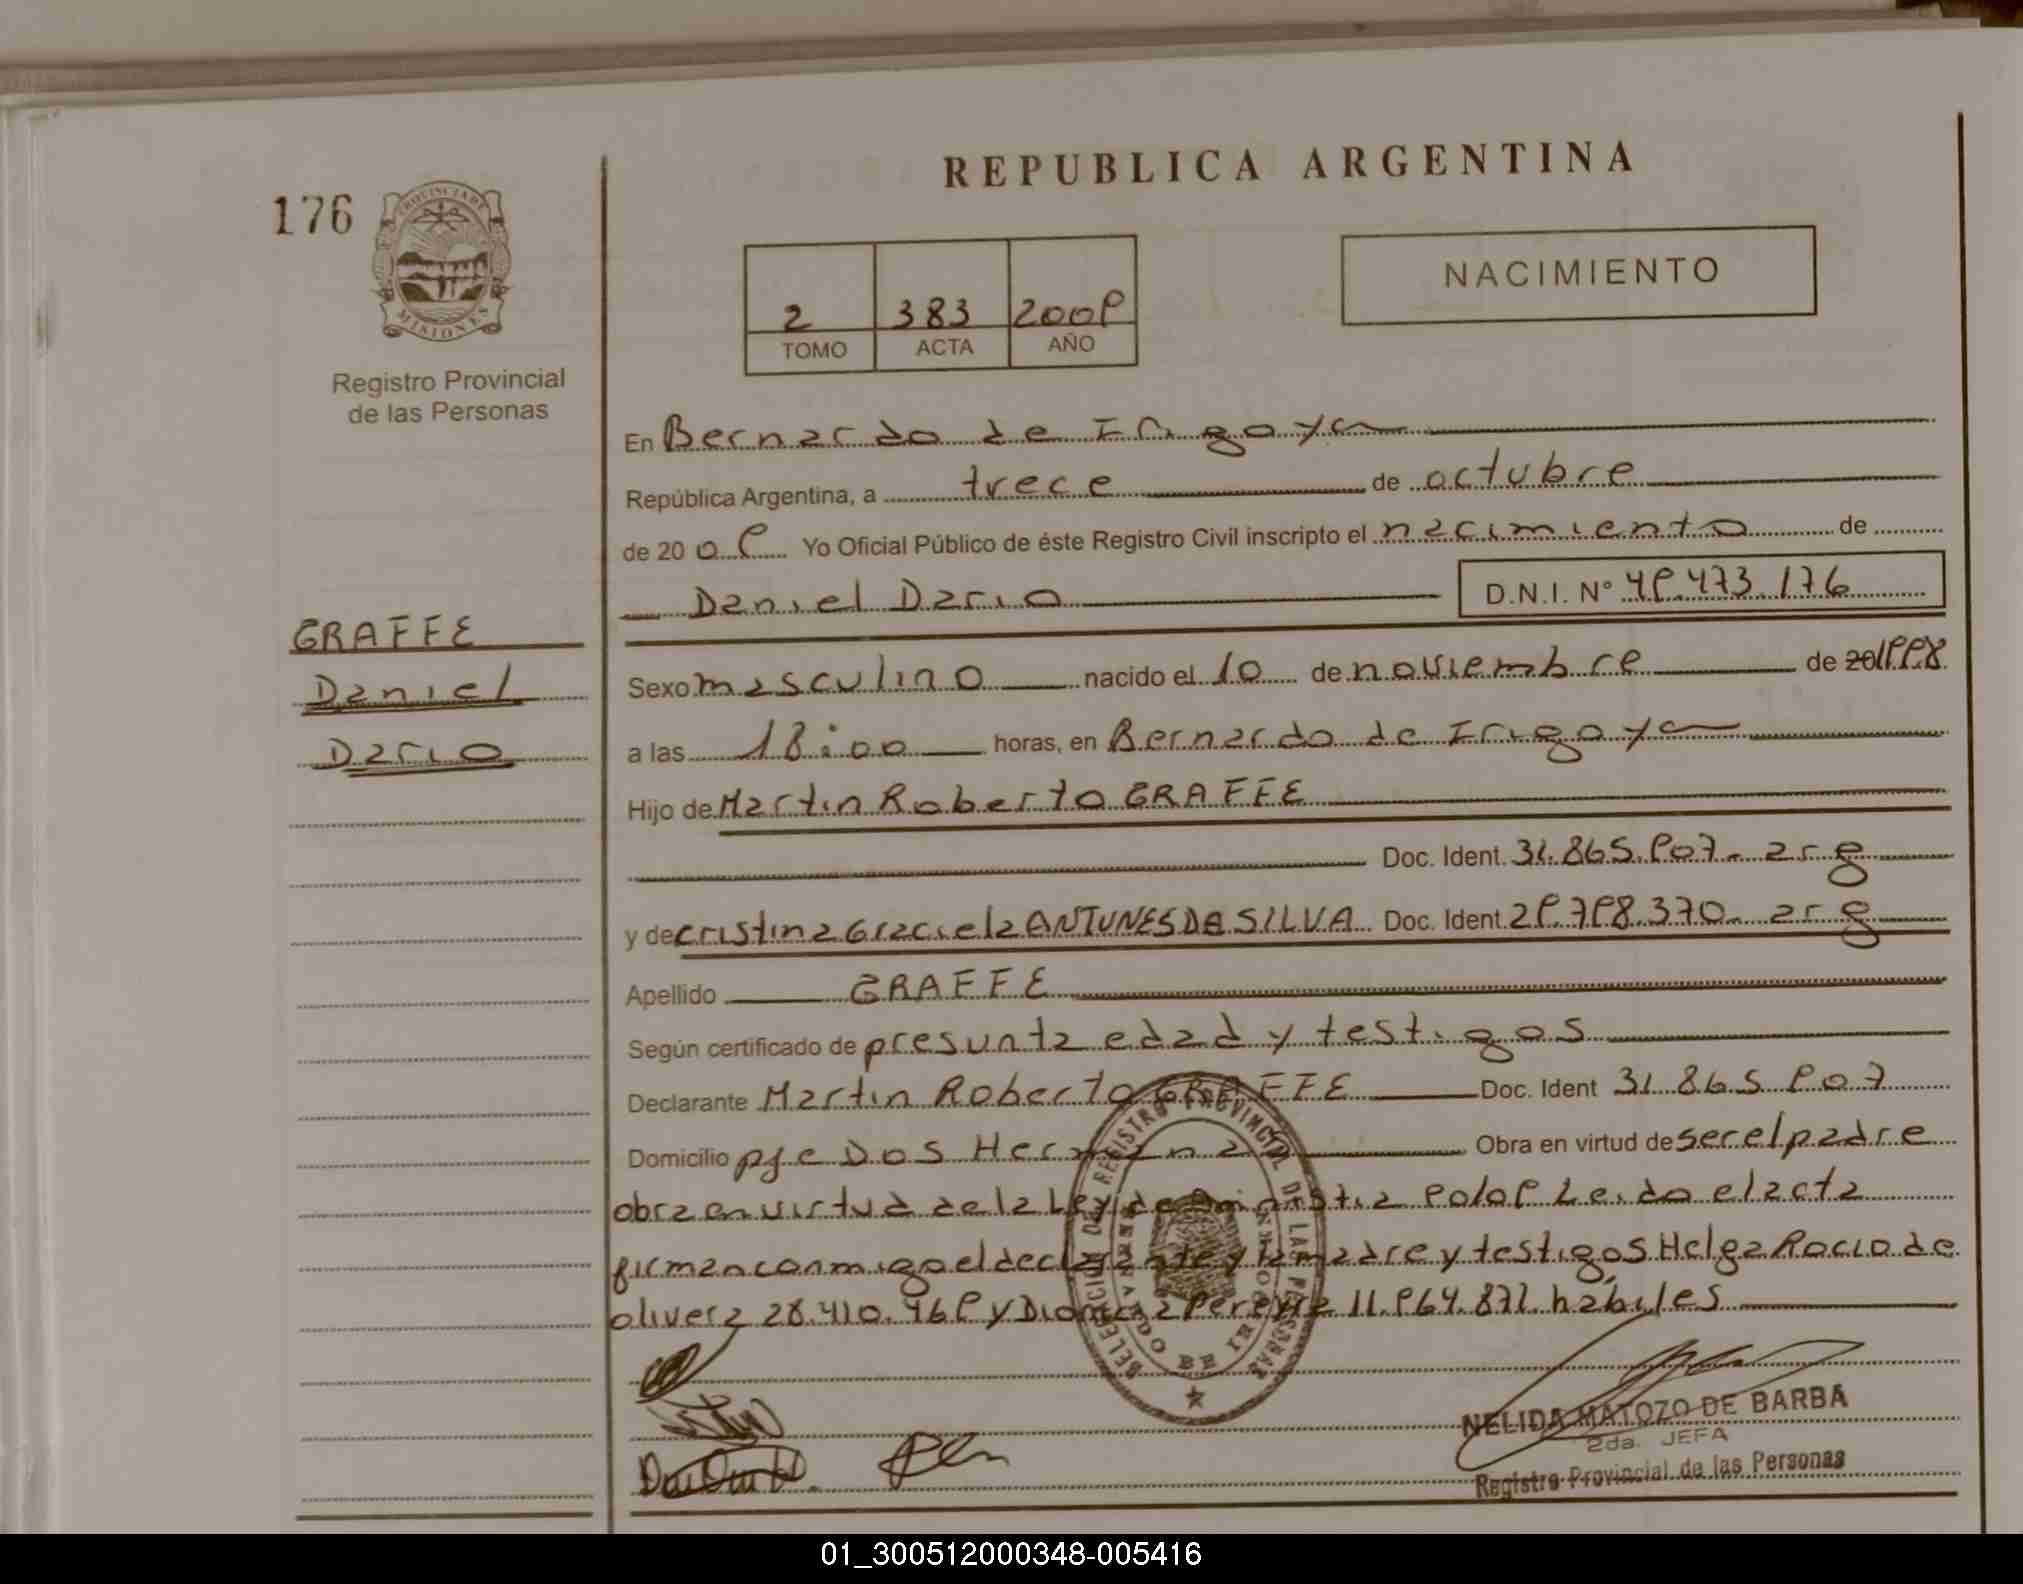 REPUBLICA ARGENTINA
176
PROVINCIA DE
MISIONES
Registro Provincial
de las Personas
NACIMIENTO
2 383 2009
TOMO ACTA AÑO
En Bernardo de Irigoyen
República Argentina, a trece de octubre
de 2009 Yo Oficial Público de éste Registro Civil inscripto el nacimiento de
Daniel Dario D.N.I. Nº 49.473.176
GRAFFE
Daniel
Dario
Sexo masculino nacido el 10 de noviembre de 20 1998
a las 18:00 horas, en Bernardo de Irigoyen
Hijo de Martin Roberto GRAFFE
Doc. Ident. 31.865.907- arg
y de cristina Graciela ANTUNES DA SILVA Doc. Ident. 29.798.370- arg
Apellido GRAFFE
Según certificado de presunta edad y testigos
Declarante Martin Roberto GRAFFE Doc. Ident 31.865.907
Domicilio pje Dos Hermana Obra en virtud de ser el padre
obra en virtud de la Ley de Amnistia 90/09 Leido el acta
firman conmigo el declarante y la madre y testigos Helga Rocio de
olivera 28.410.469 y Dionicia Pereyra 11.964.871 hábiles
DELEGACION DE REGISTRO PROVINCIAL DE LAS PERSONAS
BERNARDO DE IRIGOYEN
NELIDA MATOZO DE BARBA
2da. JEFA
Registro Provincial de las Personas
01_300512000348-005416